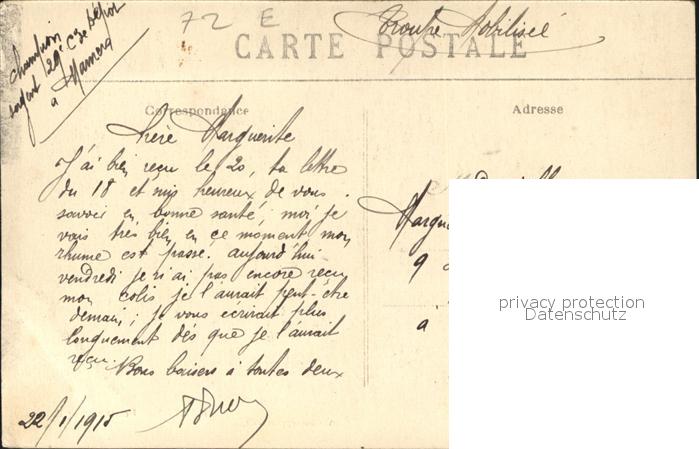 72 E
Troupe Mobilisée
Champion
sergent 29e Cie Dépôt
à Mamers
CARTE POSTALE
Correspondance
Adresse
Chère Marguerite
J'ai bien reçu le 20, ta lettre
du 18 et suis heureux de vous
savoir en bonne santé, moi je
vais très bien en ce moment mon
rhume est passé. aujourd'hui
vendredi je n'ai pas encore reçu
mon colis je l'aurait peut-être
demain; je vous écrirait plus
longuement dés que je l'aurait
reçu.
Bons baisers à toutes deux
22/1/1915
9
à
privacy protection
Datenschutz